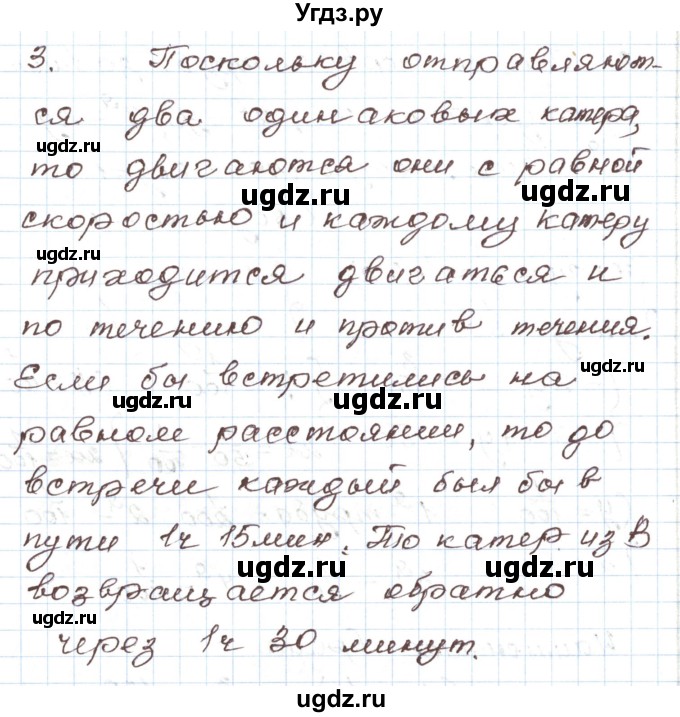 Угдз.ру
3. Поскольку отправляют-
ugdz.ru
ugdz.ru
ся два одинаковых катера,
ugdz.ru
то двигаются они с равной
ugdz.ru
ugdz.ru
скоростью и каждому катеру
ugdz.ru
приходится двигаться и
по течению и против течения.
ugdz.ru
Если бы встретились на
ugdz.ru
ugdz.ru
равном расстоянии, то до
встречи каждый был бы в
пути 1ч 15мин. То катер из В
ugdz.ru
ugdz.ru
возвращается обратно
ugdz.ru
через 1ч 30 минут.
ugdz.ru